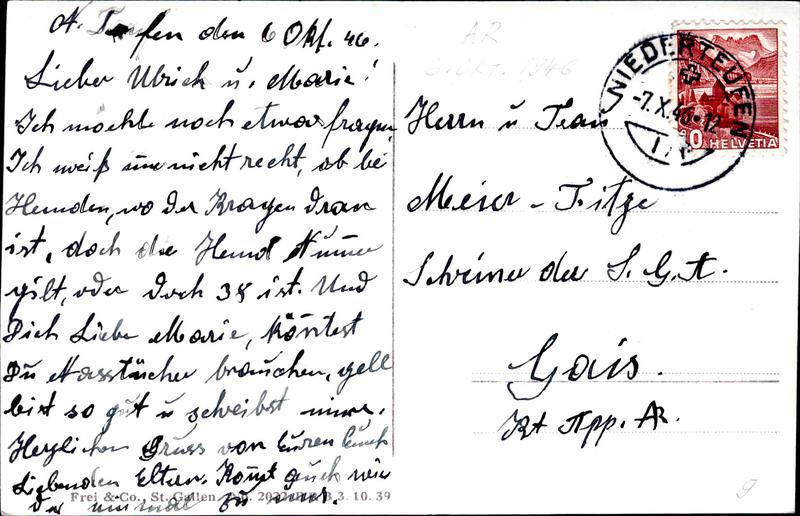 N. Teufen den 6 Okt. 46.
Lieber Ulrich u. Marie!
Ich möchte noch etwas fragen,
Ich weiß nur nicht recht, ob bei
Hemden, wo der Kragen dran
ist, doch die Hemd Numer
gilt, oder doch 38 ist. Und
Dich Liebe Marie, köntest
Du Nasstücher brauchen, gell
bist so gut u schreibst
Herzlichen Gruss von Euren Euch
Liebenden Eltern. Komt auch wie
der einmal zu uns.
Frei & Co., St. Gallen. 3. 10. 39
AR
6. OKT. 1946
NIEDERTEUFEN
-7.X.46-12
HELVETIA
Herrn u Frau
Meier - Fitze
Schreiner der S. G. A.
Gais.
Kt App. AR.
9